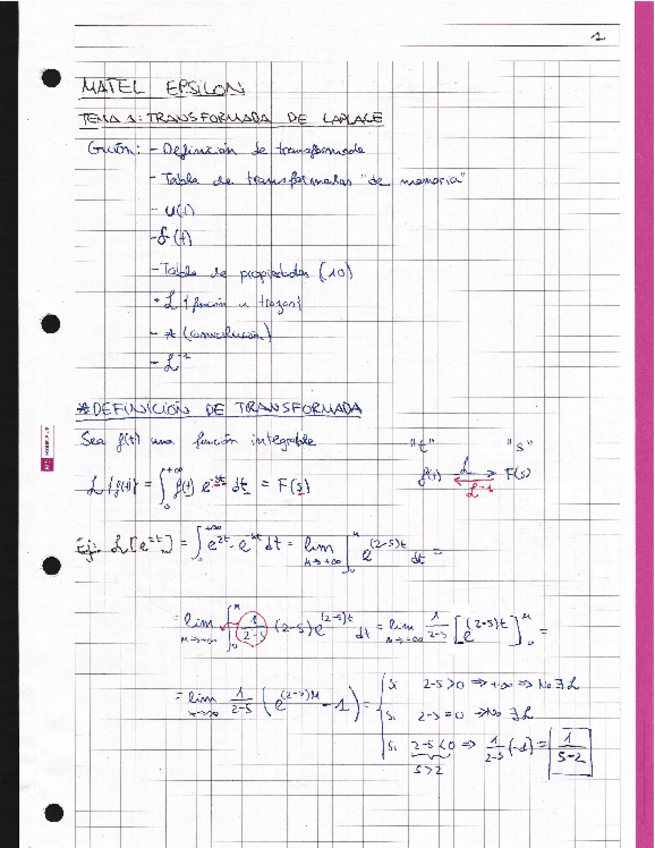 1
MATEL EPSILON
TEMA 1: TRANSFORMADA DE LAPLACE
Guión: - Definición de transformada
- Tabla de transformadas "de memoria"
- u(t)
- δ(t)
- Tabla de propiedades (10)
• L {función a trozos}
- * (convolución)
- L⁻¹
*DEFINICIÓN DE TRANSFORMADA
Sea f(t) una función integrable
"t" "s"
L{f(t)} = ∫₀^{+∞} f(t) e^{-st} dt = F(s)
f(t) L → F(s)
← L⁻¹
Ej: L[e^{2t}] = ∫₀^{+∞} e^{2t} · e^{-st} dt = lim_{M→+∞} ∫₀^M e^{(2-s)t} dt =
= lim_{M→+∞} ∫₀^M 1/(2-s) (2-s) e^{(2-s)t} dt = lim_{M→+∞} 1/(2-s) [e^{(2-s)t}]₀^M =
= lim 1/(2-s) (e^{(2-s)M} - 1) = { Si 2-s>0 ⇒ +∞ ⇒ No ∃ L
Si 2-s=0 ⇒ No ∃ L
Si 2-s<0 ⇒ 1/(2-s) (-1) = 1/(s-2)
s>2